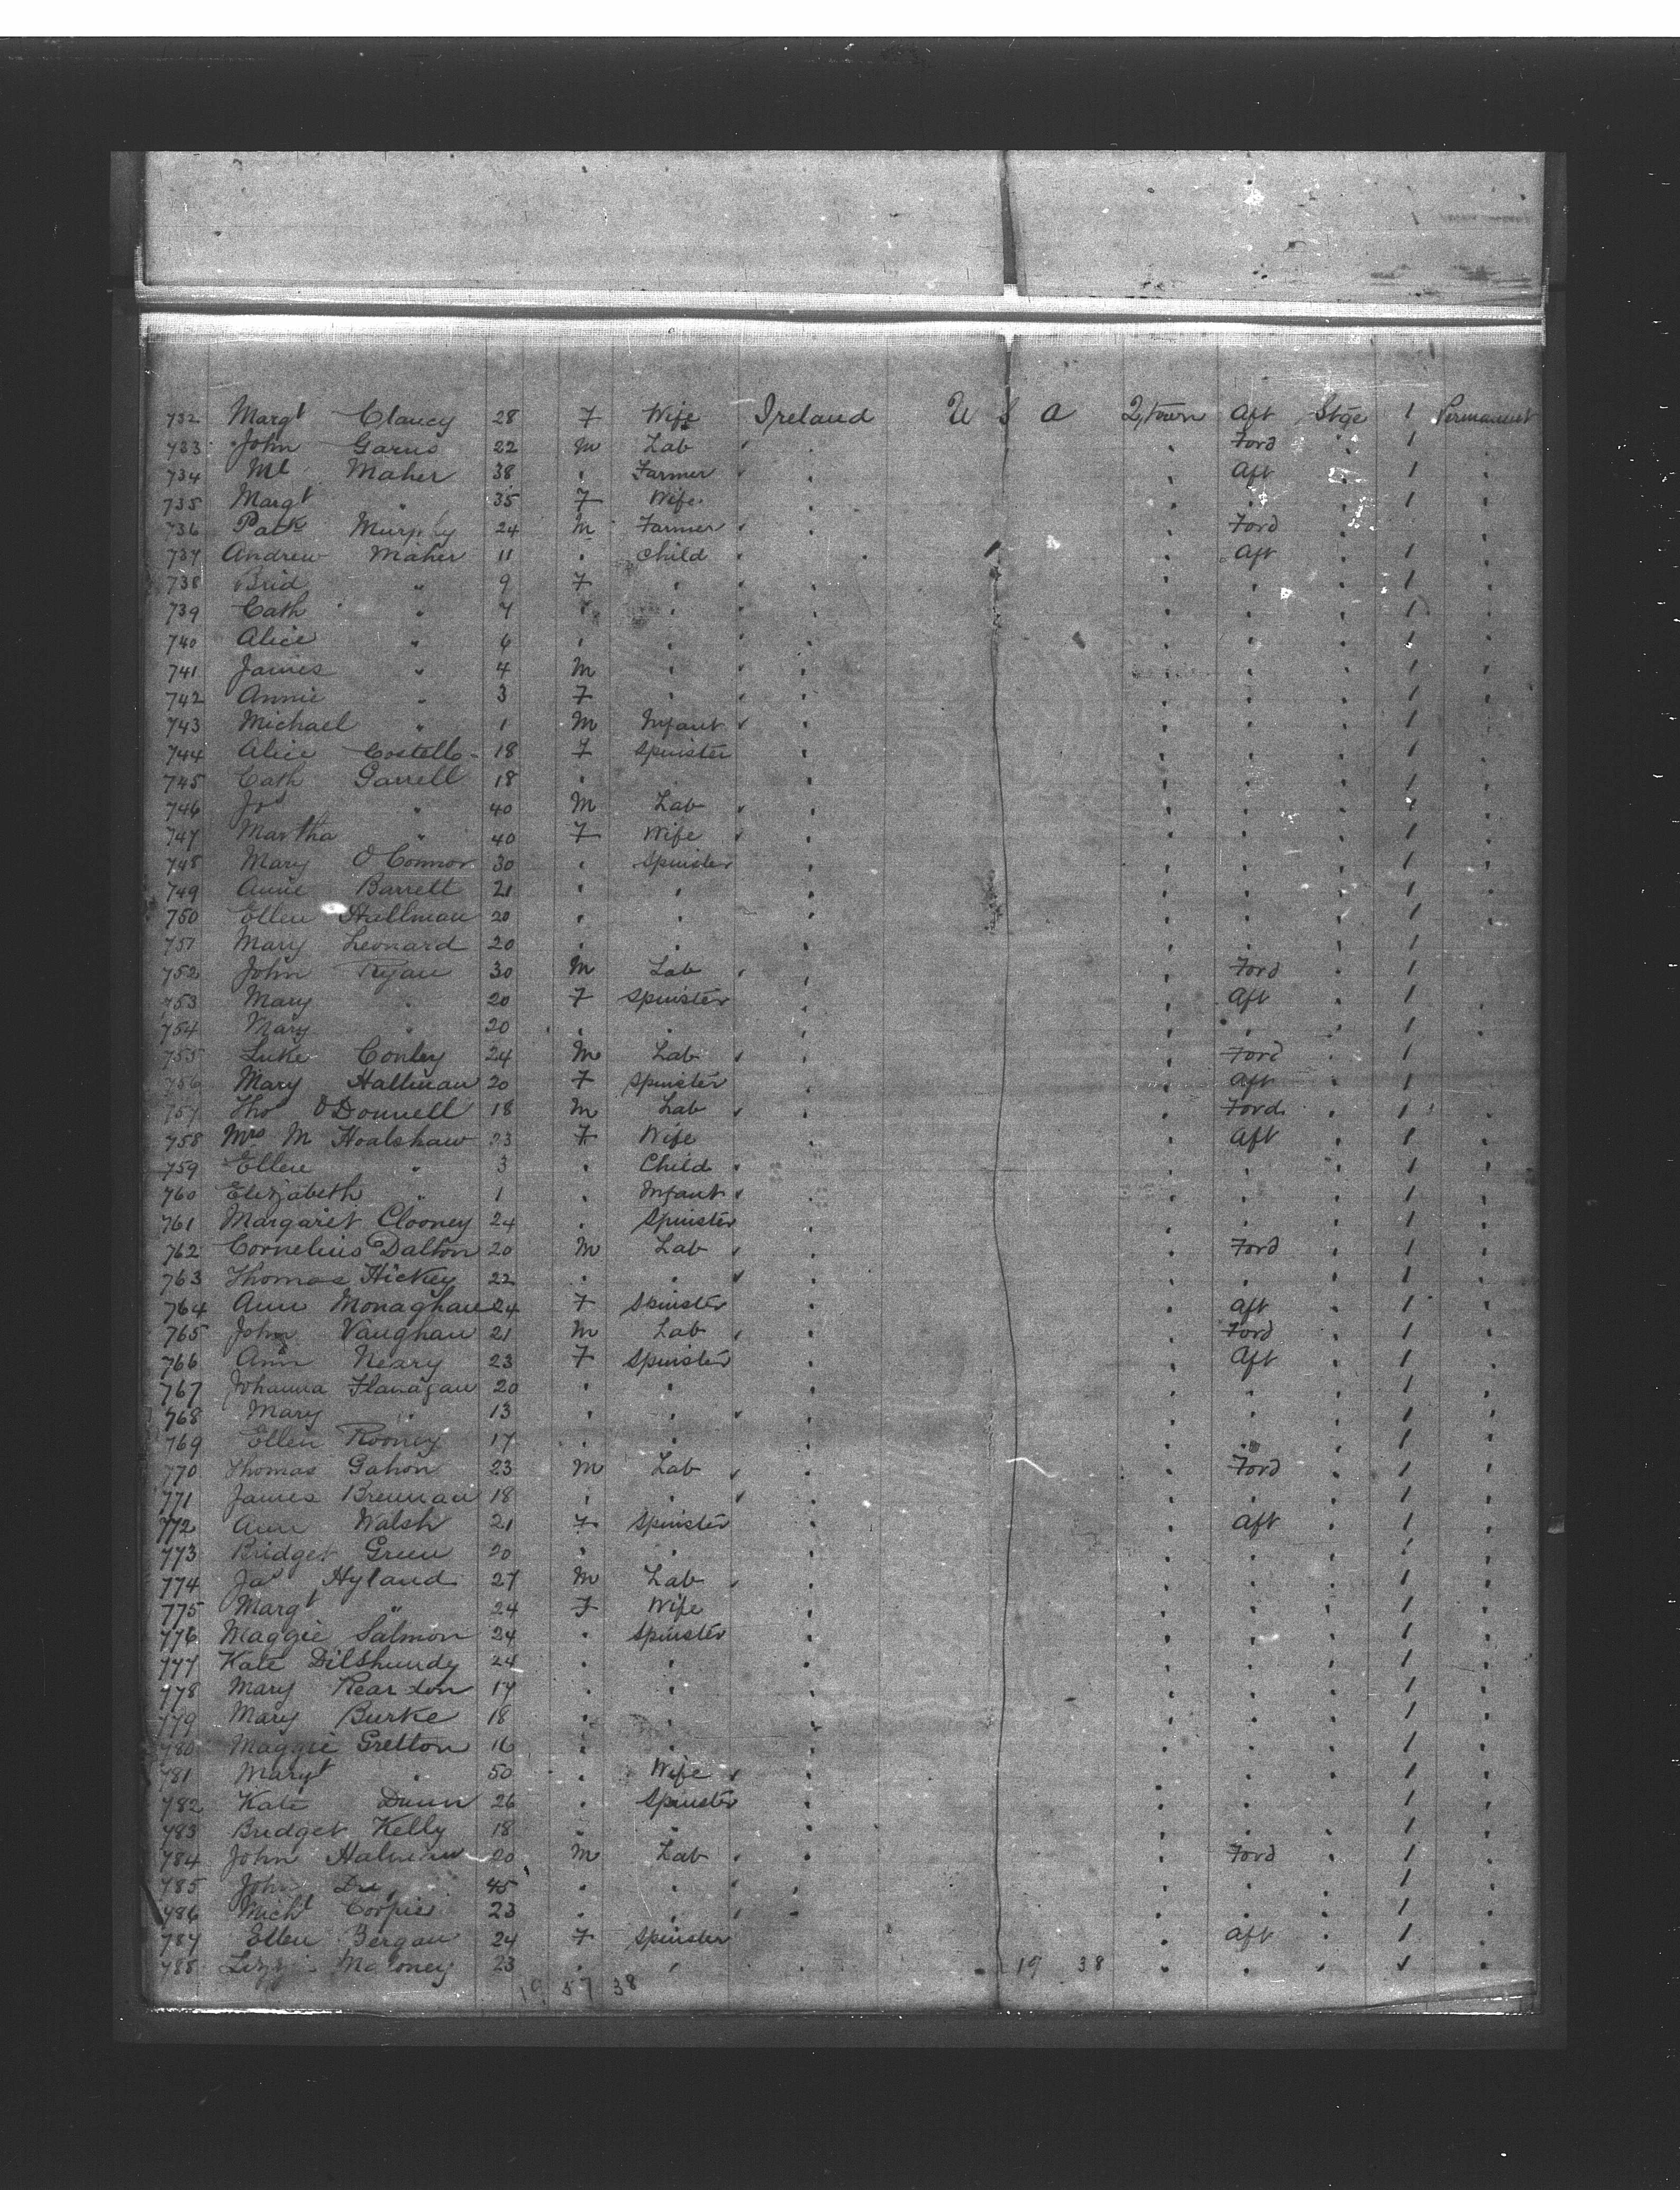 732 Margt Clancy 28 F Wife Ireland U S A Q,town Aft Stge 1 Permanent
733 John Garus 22 M Lab " " " Ford " 1 "
734 Ml Maher 38 " Farmer " " " Aft " 1 "
735 Margt " 35 F Wife " " " " 1 "
736 Patk Murphy 24 M Farmer " " " Ford "
737 Andrew Maher 11 " Child " " " Aft " 1 "
738 Brid " 9 F " " " " " " 1 "
739 Cath " 7 " " " " " " " 1 "
740 Alice " 6 " " " " " " " 1 "
741 James " 4 M " " " " " " 1 "
742 Annie " 3 F " " " " " " 1 "
743 Michael " 1 M Infant " " " " " 1 "
744 Alice Costello 18 F Spinster " " " " 1 "
745 Cath Garrell 18 " " " " " " 1 "
746 Jos " 40 M Lab " " " " " 1 "
747 Martha " 40 F Wife " " " " " 1 "
748 Mary O'Connor 30 " Spinster " " " " 1 "
749 Annie Barrett 21 " " " " " " 1 "
750 Ellen Hallman 20 " " " " " " 1 "
751 Mary Leonard 20 " " " " " " 1 "
752 John Ryan 30 M Lab " " " Ford " 1 "
753 Mary " 20 F Spinster " " Aft " 1 "
754 Mary " 20 " " " " " " 1 "
755 Luke Conley 24 M Lab " " " Ford " 1 "
756 Mary Hallman 20 F Spinster " " Aft " 1 "
757 Thos O'Donnell 18 M Lab " " " Ford " 1 "
758 Mrs M Hoalshaw 23 F Wife " " Aft " 1 "
759 Ellen " 3 " Child " " " " " 1 "
760 Elizabeth " 1 " Infant " " " " " 1 "
761 Margaret Clooney 24 " Spinster " " " " 1 "
762 Cornelius Dalton 20 M Lab " " " Ford " 1 "
763 Thomas Hickey 22 " " " " " " " 1 "
764 Ann Monaghan 24 F Spinster " " Aft " 1 "
765 John Vaughan 21 M Lab " " " Ford " 1 "
766 Ann Neary 23 F Spinster " " Aft " 1 "
767 Johanna Flanagan 20 " " " " " " 1 "
768 Mary " 13 " " " " " " " 1 "
769 Ellen Rooney 17 " " " " " " 1 "
770 Thomas Gahon 23 M Lab " " " Ford " 1 "
771 James Brennan 18 " " " " " " " 1 "
772 Ann Walsh 21 F Spinster " " Aft " 1 "
773 Bridget Green 20 " " " " " " 1 "
774 Jas Hyland 27 M Lab " " " " " 1 "
775 Margt " 24 F Wife " " " " 1 "
776 Maggie Salmon 24 " Spinster " " " " 1 "
777 Kate Dilshundy 24 " " " " " " 1 "
778 Mary Reardon 17 " " " " " " 1 "
779 Mary Burke 18 " " " " " " 1 "
780 Maggie Gretton 16 " " " " " " 1 "
781 Margt " 50 " Wife " " " " " 1 "
782 Kate Dunn 26 " Spinster " " " " 1 "
783 Bridget Kelly 18 " " " " " " 1 "
784 John 20 M Lab " " " Ford " 1 "
785 John 45 " " " " " " " 1 "
786 Michl 23 " " " " " " " 1 "
787 Ellen Bergan 24 F Spinster " Aft " 1 "
788 Maloney 23 " " " 19 38 " " " "
19 57 38